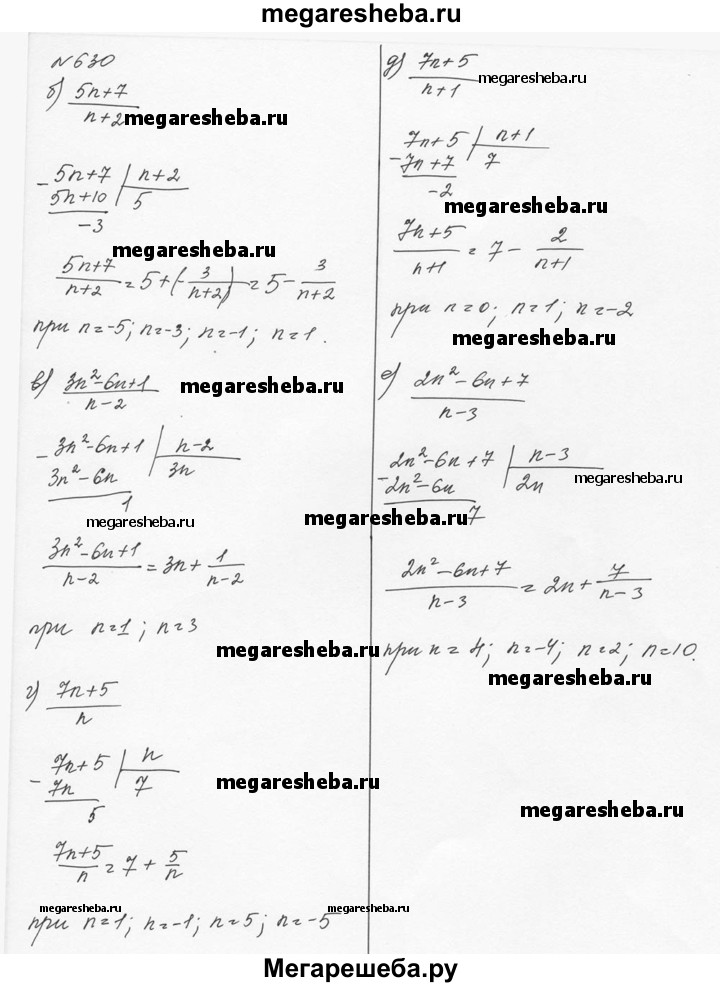 megaresheba.ru
№630
б) (5n+7)/(n+2) megaresheba.ru
- 5n+7 | n+2
5n+10 | 5
-3
megaresheba.ru
(5n+7)/(n+2) = 5+(-3/(n+2)) = 5 - 3/(n+2)
при n=-5; n=-3; n=-1; n=1.
в) (3n²-6n+1)/(n-2) megaresheba.ru
- 3n²-6n+1 | n-2
3n²-6n | 3n
1
megaresheba.ru
(3n²-6n+1)/(n-2) = 3n + 1/(n-2)
при n=1; n=3
megaresheba.ru
г) (7n+5)/n
- 7n+5 | n
7n | 7
5
megaresheba.ru
(7n+5)/n = 7 + 5/n
megaresheba.ru
при n=1; n=-1; n=5; n=-5
д) (7n+5)/(n+1) megaresheba.ru
- 7n+5 | n+1
7n+7 | 7
-2
megaresheba.ru
(7n+5)/(n+1) = 7 - 2/(n+1)
при n=0; n=1; n=-2
megaresheba.ru
е) (2n²-6n+7)/(n-3)
- 2n²-6n+7 | n-3
2n²-6n | 2n megaresheba.ru
7
megaresheba.ru
(2n²-6n+7)/(n-3) = 2n + 7/(n-3)
при n=4; n=-4; n=2; n=10.
megaresheba.ru
megaresheba.ru
megaresheba.ru
Мегарешеба.ру